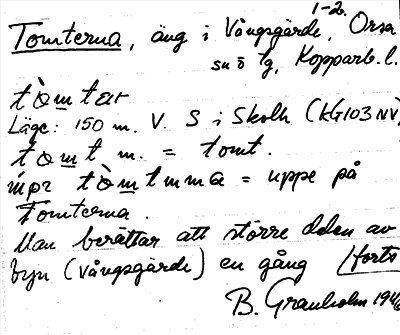 1-2.
Tomterna, äng i Vångsgärde, Orsa
sn o tg, Kopparb. l.
tòmtar
Läge: 150 m. V. S i Skolh (KG103NV)
tomt m. = tomt.
ɯpɪ tòmtmma = uppe på
Tomterna.
Man berättar att större delen av
byn (Vångsgärde) en gång forts
B. Granholm 194